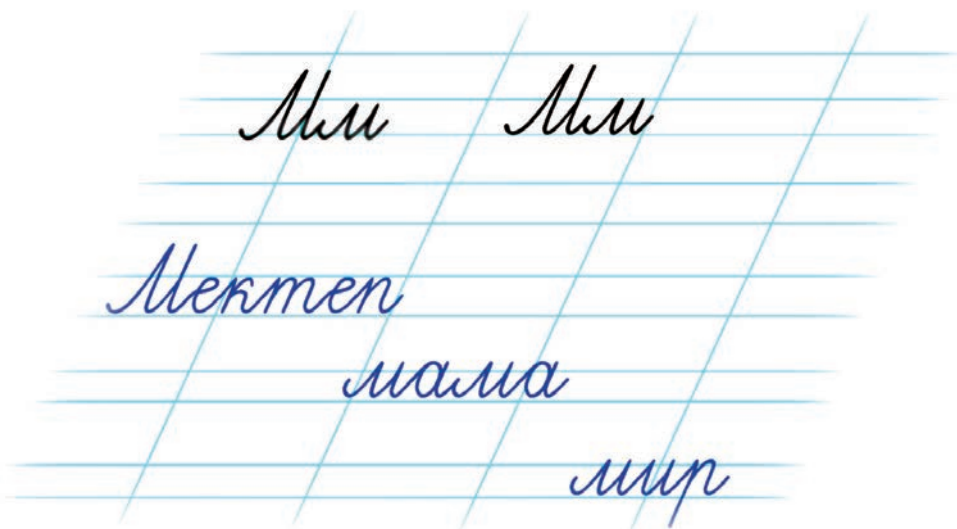 Мм Мм
Мектеп
мама
мир